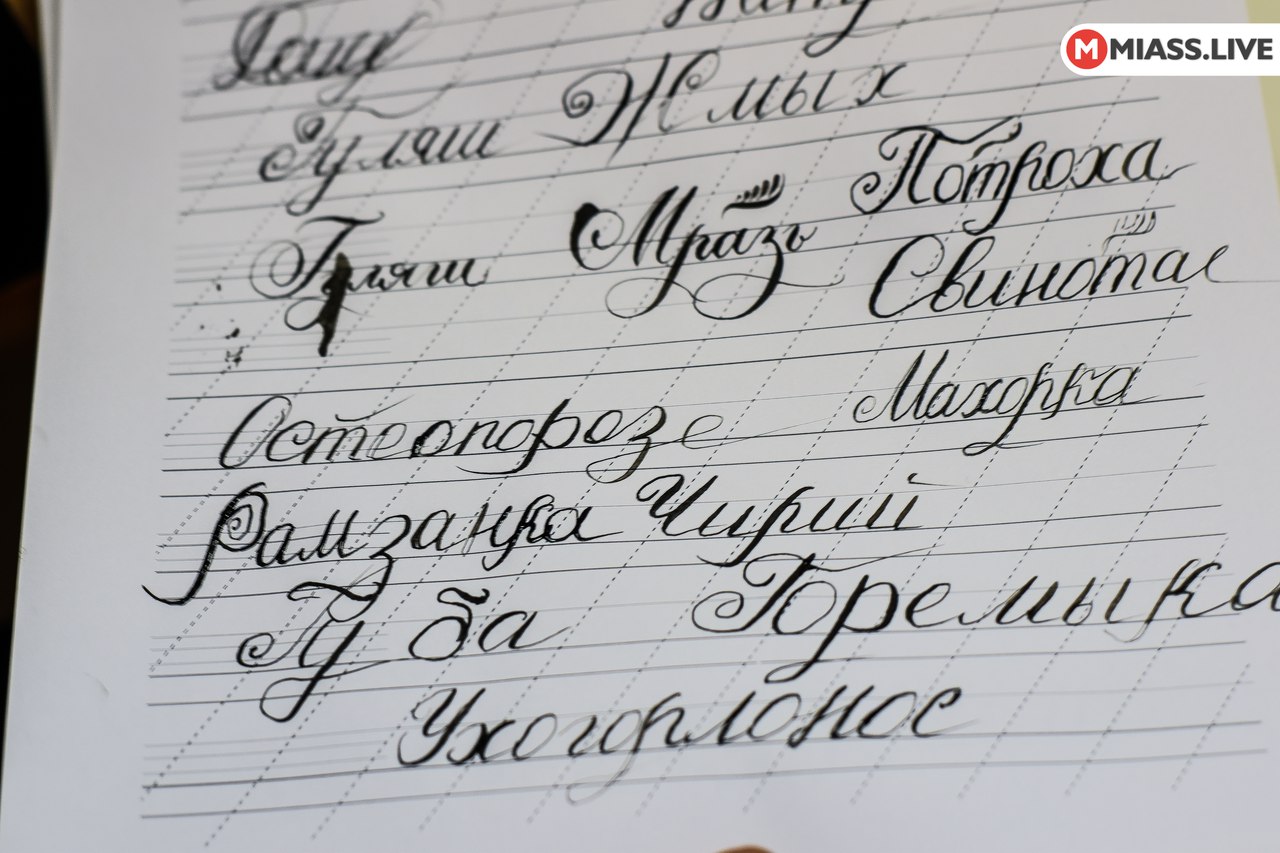 MIASS.LIVE
Гуляш Жмых
Потроха
Гуляш Мразь
Свинота
Махорка
Остеопороз
Рамзанка Чирий
Губа Горемыка
Ухогорлонос